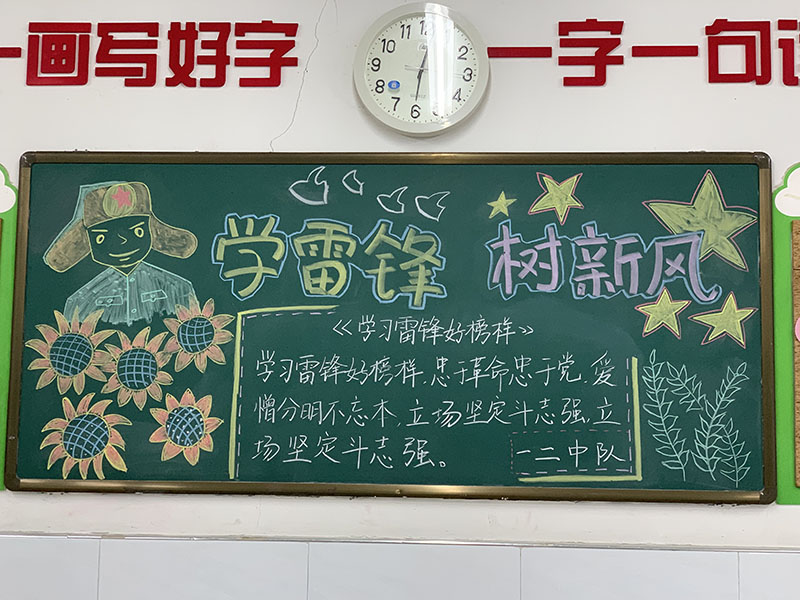 一画写好字
一字一句
12
1
2
3
4
5
6
7
8
9
10
11
学雷锋 树新风
《学习雷锋好榜样》
学习雷锋好榜样,忠于革命忠于党,爱
憎分明不忘本,立场坚定斗志强,立
场坚定斗志强。
一二中队